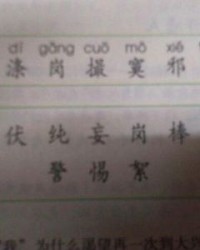 dí gǎng cuō mò xié
涤 岗 撮 寞 邪
伏 纯 妄 岗 棒
警 惕 絮